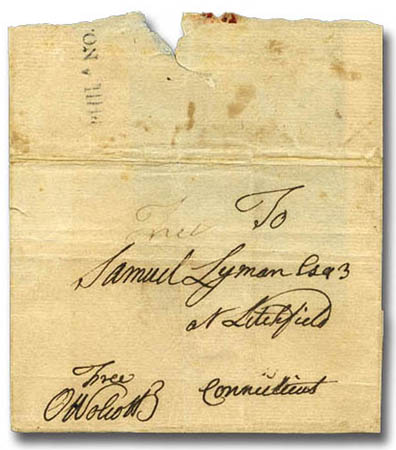 PHILA NO.
To
Free
Samuel Lyman Esqr
N Litchfield
Connecticut
Free
O Wolcott